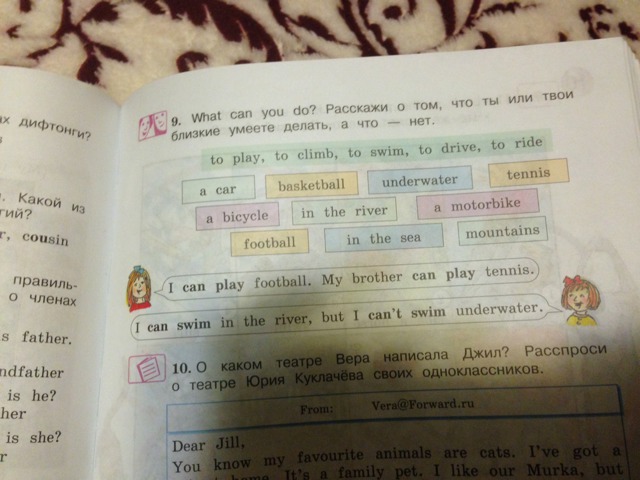 ах дифтонги?
. Какой из
гий?
r, cousin
правиль-
о членах
s father.
ndfather
is he?
her
is she?
r
9. What can you do? Расскажи о том, что ты или твои
близкие умеете делать, а что — нет.
to play, to climb, to swim, to drive, to ride
a car basketball underwater tennis
a bicycle in the river a motorbike
football in the sea mountains
I can play football. My brother can play tennis.
I can swim in the river, but I can't swim underwater.
10. О каком театре Вера написала Джил? Расспроси
о театре Юрия Куклачёва своих одноклассников.
From: Vera@Forward.ru
Dear Jill,
You know my favourite animals are cats. I've got a
home. It's a family pet. I like our Murka, but